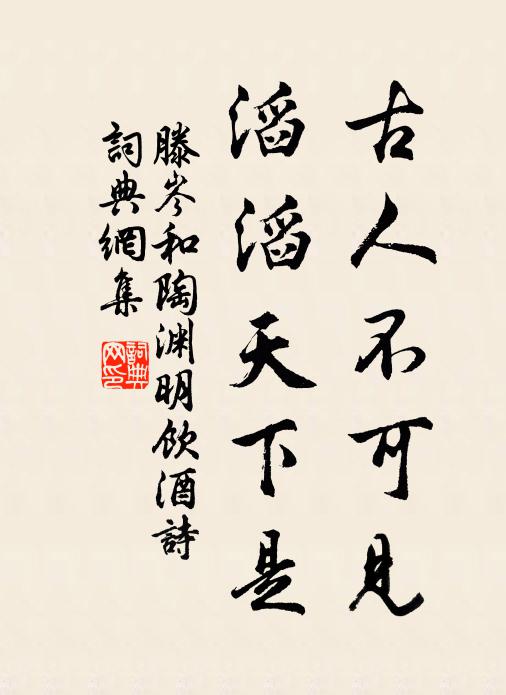 古人不可見
滔滔天下是
滕岑和陶渊明飲酒詩
詞典網集
詞典
网印